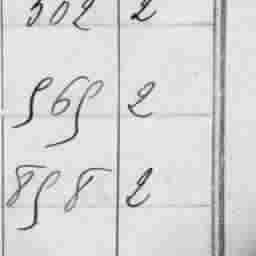 302 2
569 2
858 2